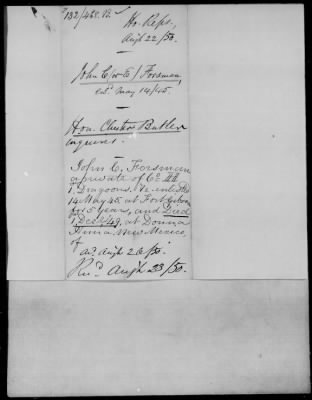 Ho. Reps,
Augt 22/50.
John C (or E) Forsman,
enl. May 14/45.
Hon. Chester Butler
inquires.
John C. Forsman
a private of
1. Dragoons. He enlisted
14 May 45, at Fort
for 5 years, and Died
1, Dec. /49, at Donna
Anna, New Mexico,
of
an. Augt 26/50.
Rec'd. Augt 23/50.